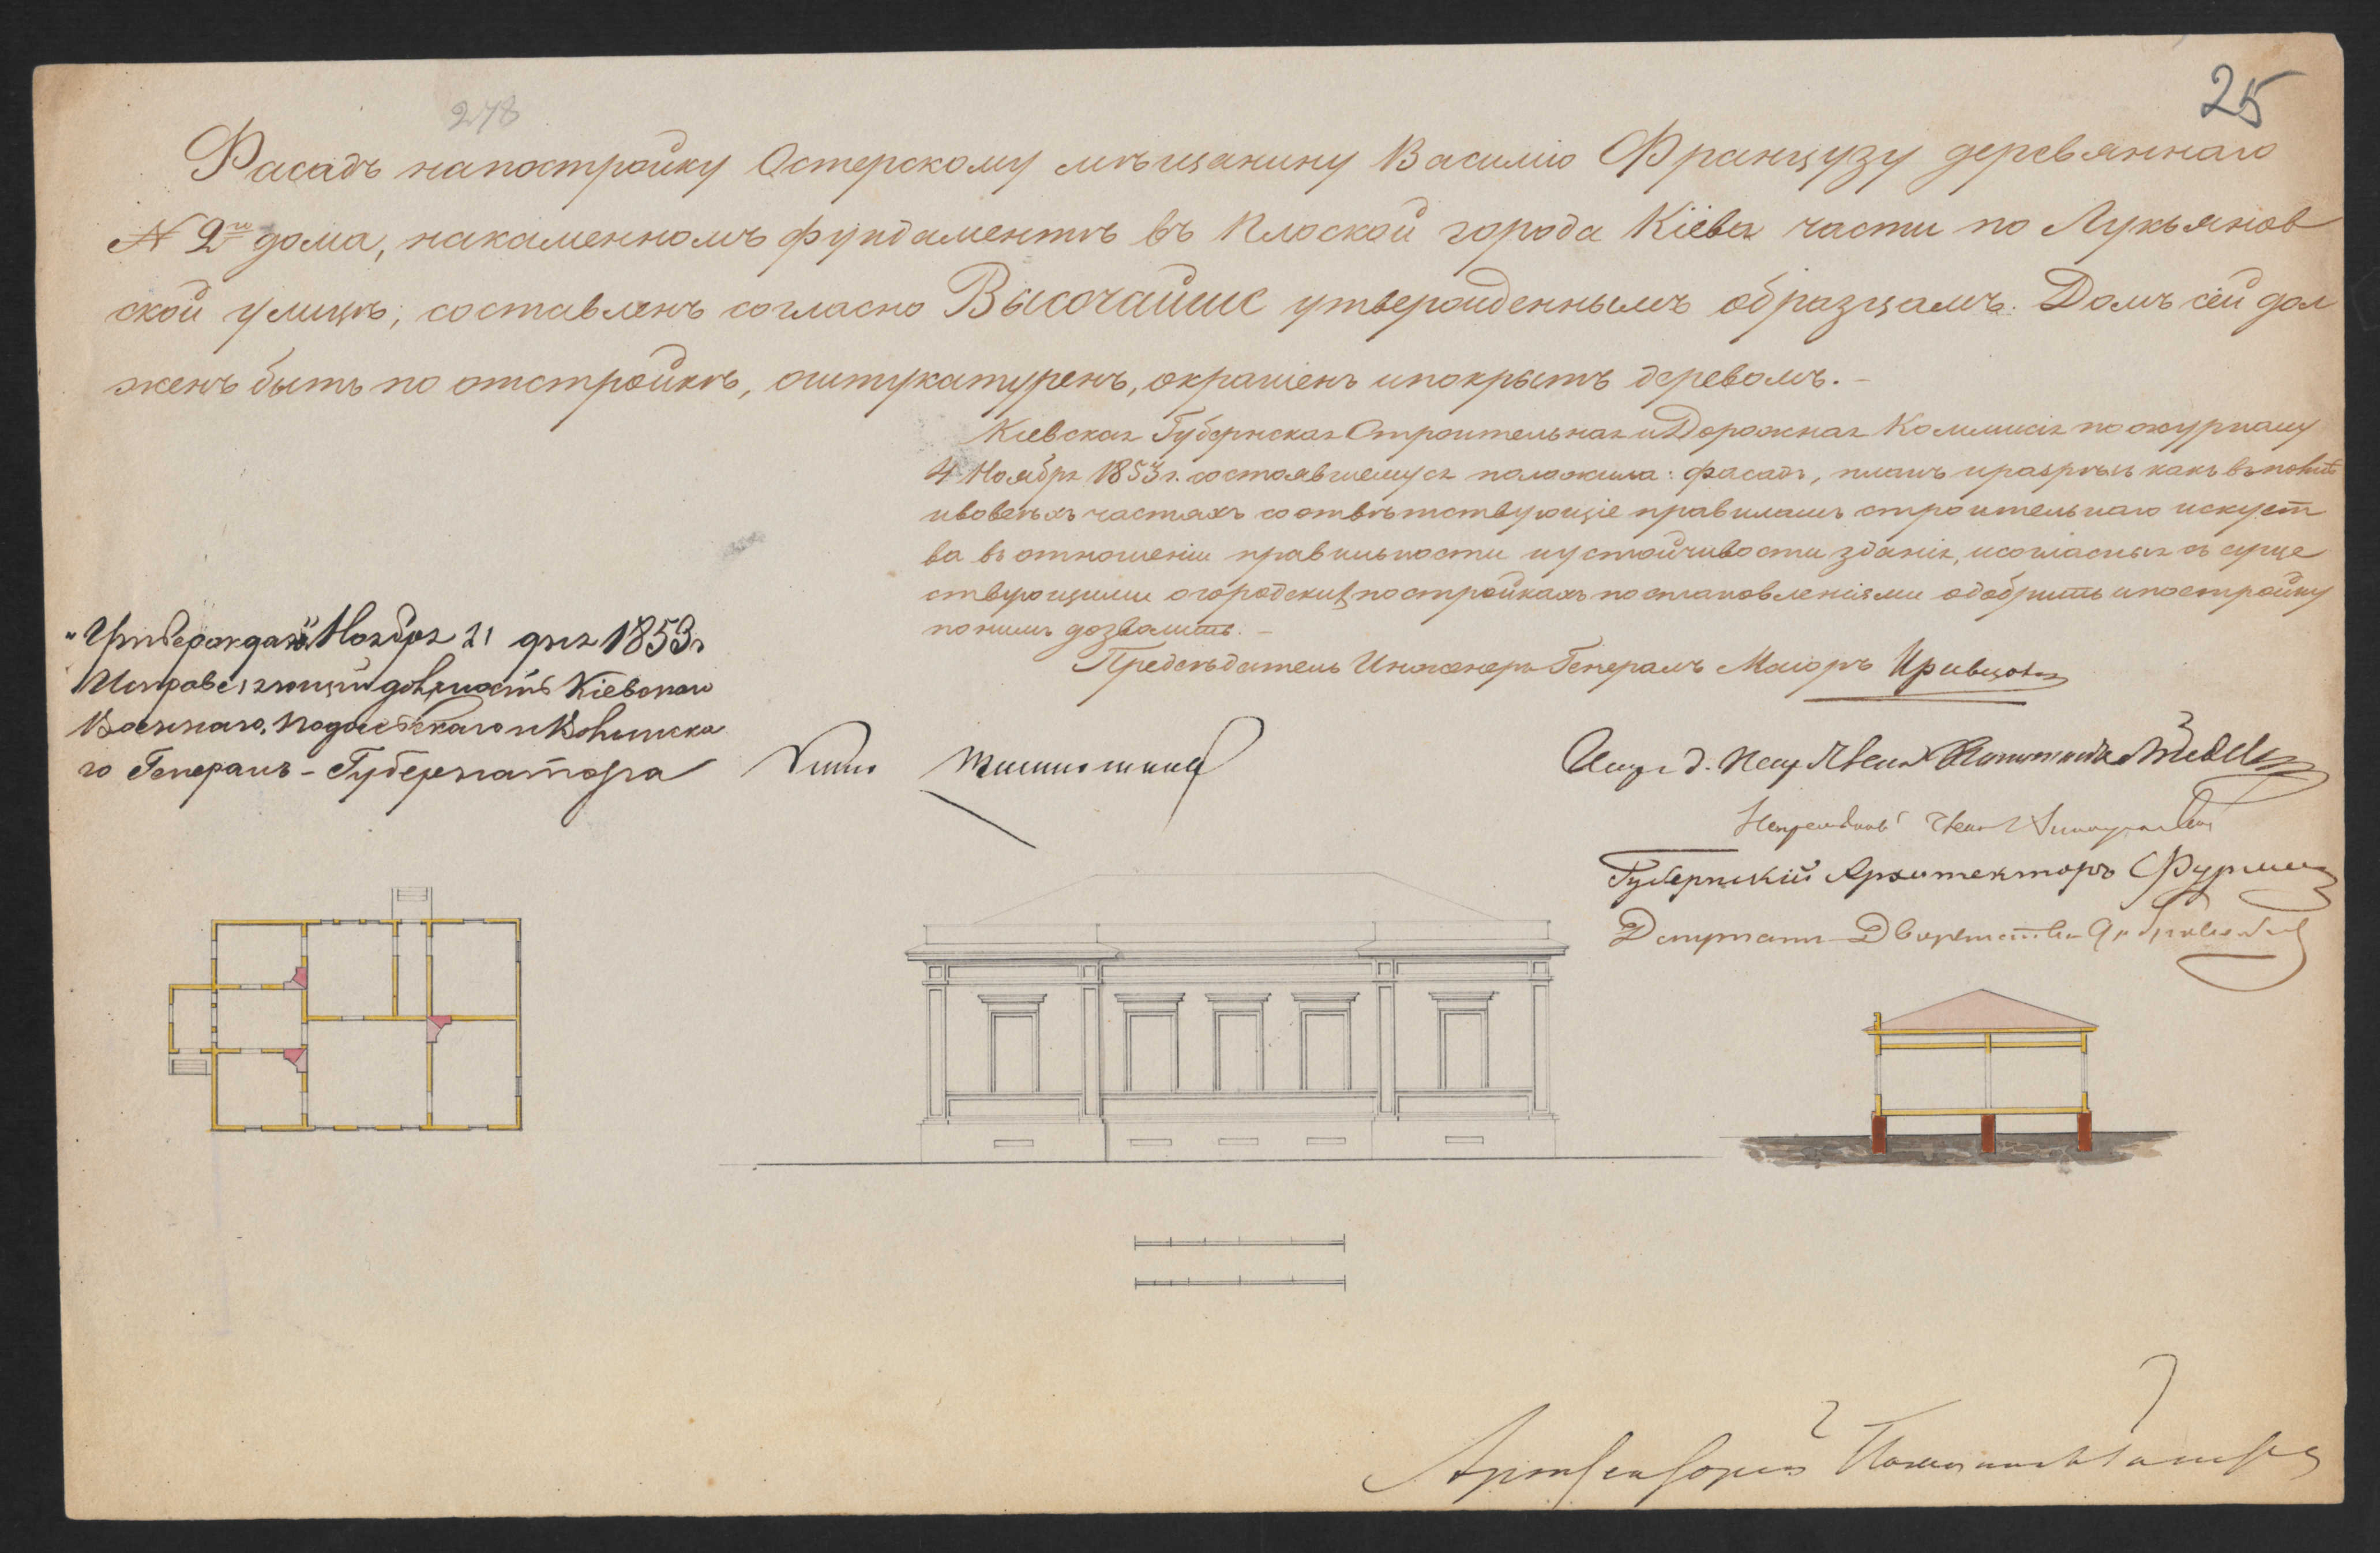 25
278
Фасадъ напостройку Остерскому мѣщанину Василію Французу деревяннаго
№ 2го дома, накаменномъ фундаментѣ въ Плоской города Кіева части по Лукьянов
ской улицѣ, составленъ согласно Высочайше утвержденнымъ образцамъ. Домъ сей дол
женъ быть по отстройкѣ, оштукатуренъ, окрашенъ и покрытъ деревомъ.-
Кіевская Губернская Строительная и Дорожная Коммисія по журналу
4 Ноября 1853 г. состоявшемуся положила: фасадъ, планъ и разрѣзъ какъ
ивовсехъ частяхъ соотвѣтствующіе правиламъ строительнаго искуст
ва въ отношеніи правильности и устойчивости зданія, и согласныя съ суще
ствующими о городскихъ постройкахъ постановленіями одобрить и постройку
по нимъ дозволить.-
Предсѣдатель Инженеръ Генералъ Маіоръ Кривцовъ
„Утверждаю" Ноября 21 дня 1853 г
Исправляющій должность Кіевскаго
Военнаго, Подольскаго и Волынска
го Генералъ-Губернатора
Губернскій Архитекторъ
Депутатъ Дворянства